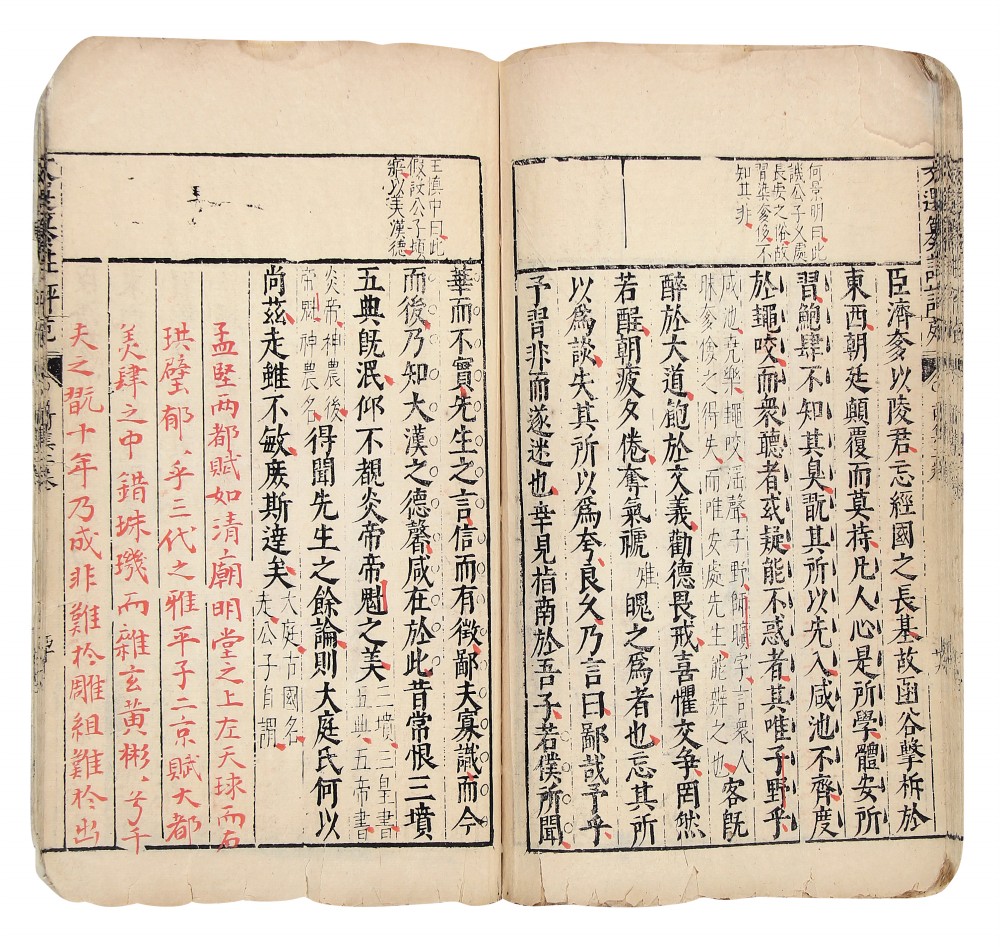 何景明曰此
譏公子又處
長安之俗故
習染奓侈不
知其非
臣濟奓以陵君忘經國之長基故函谷擊柝於
東西朝廷顛覆而莫持凡人心是所學體安所
習鮑肆不知其臭翫其所以先入咸池不齊度
於䵷咬而衆聽者或疑能不惑者其唯子野乎
咸池堯樂䵷咬滛聲子野師曠字言衆人
昧奓儉之得失而唯安處先生能辨之也
客旣
醉於大道飽於文義勸德畏戒喜懼交争罔然
若酲朝疲夕倦奪氣褫
魄之爲者也忘其所
以爲談失其所以爲夸良久乃言曰鄙哉予乎
予習非而遂迷也幸見指南於吾子若僕所聞
王慎中曰此
假設公子頌
辭以美漢德
華而不實先生之言信而有徵鄙夫寡識而今
而後乃知大漢之德馨咸在於此昔常恨三墳
五典旣泯仰不覩炎帝帝魁之美
三墳三皇書
五典五帝書
炎帝神農後
帝魁神農名
得聞先生之餘論則大庭氏何以
尚茲走雖不敏庶斯達矣
大庭古國名
走公子自謂
孟堅兩都賦如清廟明堂之上左天球而右
珙璧郁乎三代之雅平子二京賦大都
羙肆之中錯珠璣而雜玄黄彬兮千
夫之翫十年乃成非難於雕組難於出